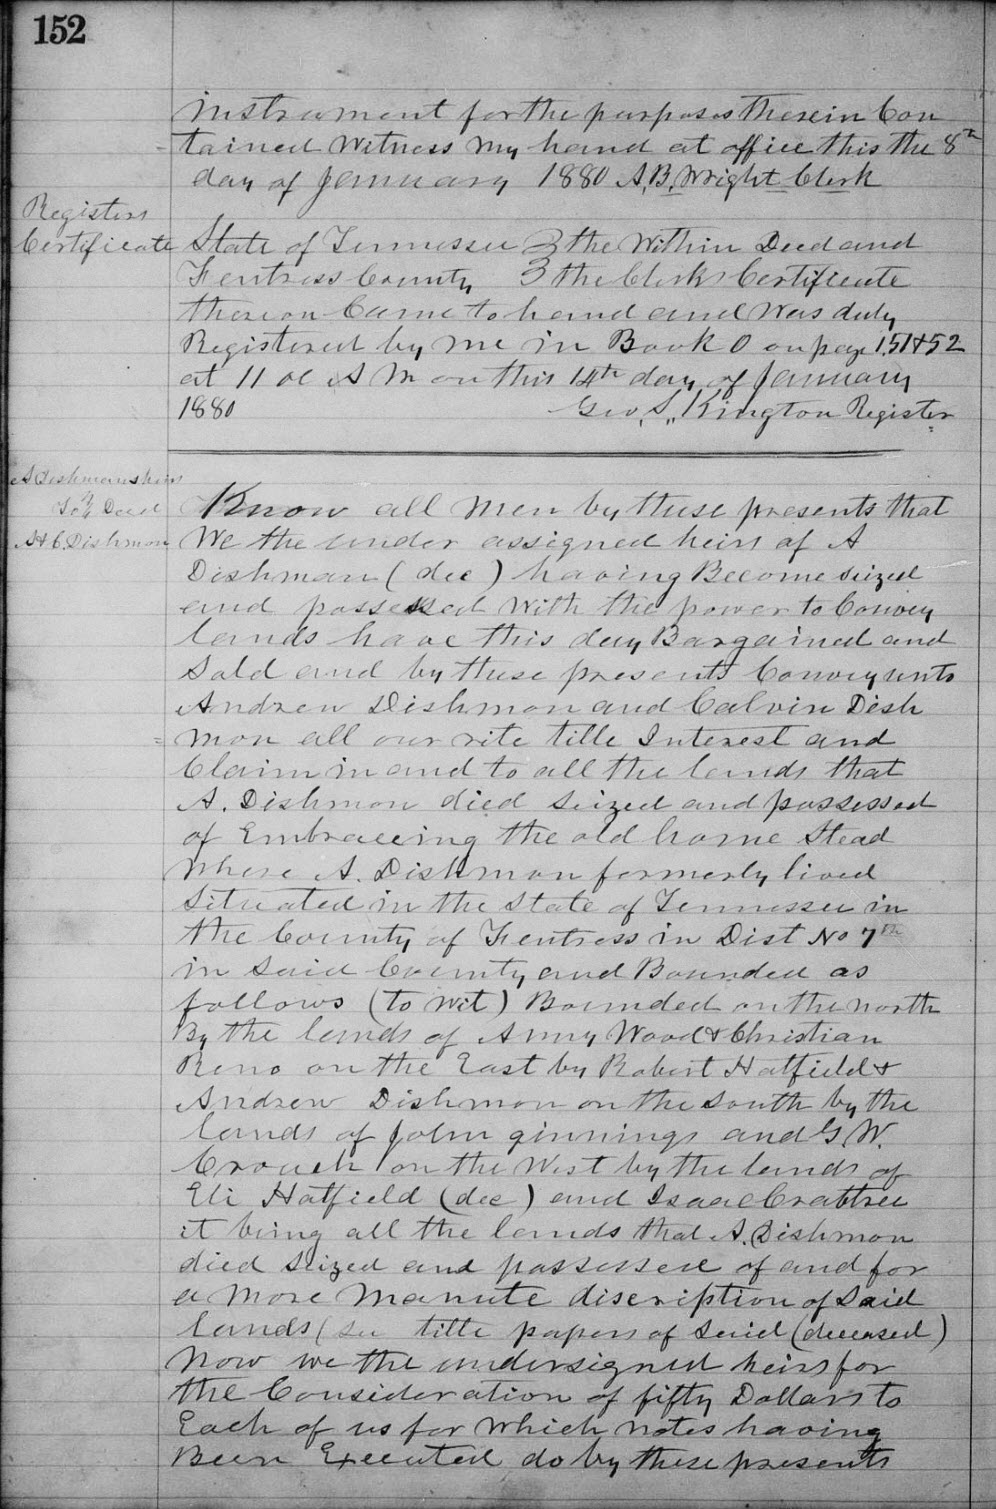 152
instrument for the purposes therein Con
tained Witness My hand at office this the 8th
day of January 1880 A,B, Wright Clerk
Registers
Certificate
State of Tennessee 3 the Within Deed and
Fentress County 3 the Clerks Certificate
thereon Came to hand and Was duly
Registered by me in Book O on page 151+52
at 11 oc A M on this 14th day of January
1880 Geo, S,, Kington Register
A Dishmans heirs
To } Deed
A+C. Dishmon
Know all Men by these presents that
We the under assigned heirs of A
Dishman (dec) having Become seized
and possessed With the power to Convey
lands have this day Bargained and
Sold and by these presents Convey unto
Andrew Dishmon and Calvin Dish
mon all our rite title Interest and
Claim in and to all the lands that
A. Dishmon died seized and possessed
of Embraceing the old home Stead
Where A. Dishmon formerly lived
Situated in the State of Tennessee in
the County of Fentress in Dist No 7th
in Said County and Bounded as
follows (to wit) Bounded on the north
By the lands of Anny Wood & Christian
Reno on the East by Robert Hatfield &
Andrew Dishmon on the South by the
lands of John ginnings and G. W.
Crouch on the West by the lands of
Eli Hatfield (dec) and Isaac Crabtree
it being all the lands that A. Dishmon
died seized and possessed of and for
a More Manute discription of Said
lands (see title papers of Said (deceased)
Now we the undersigned heirs for
the Consideration of fifty Dollars to
Each of us for Which notes having
Been Executed do by these presents